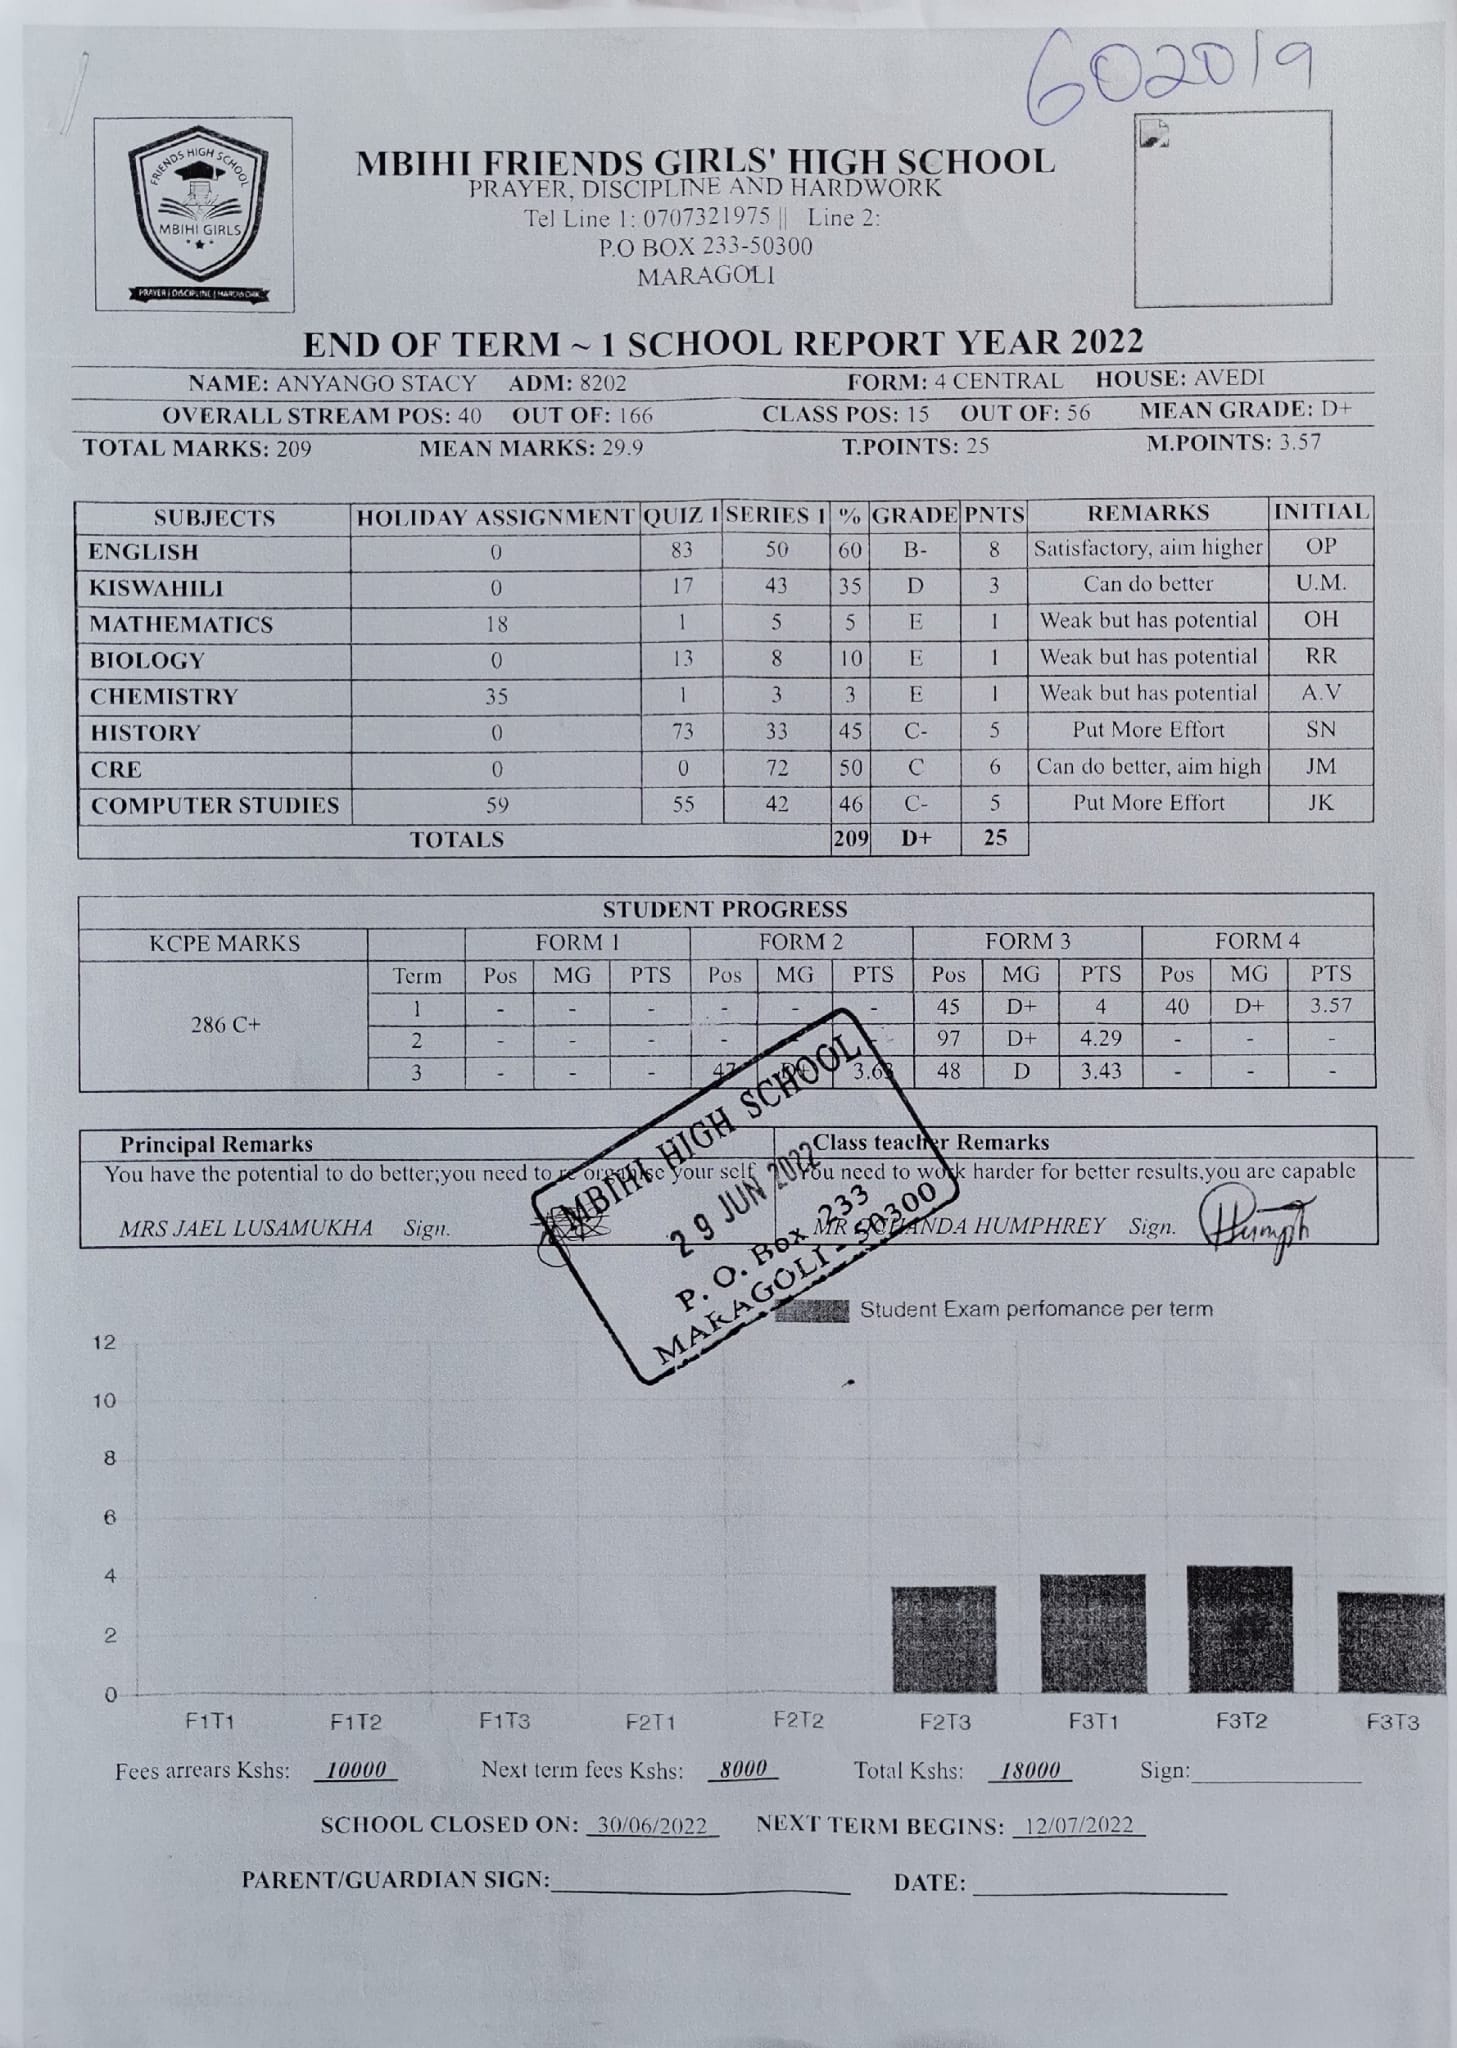 602019
FRIENDS HIGH SCHOOL
MBIHI GIRLS
PRAYER | DISCIPLINE | HARDWORK
MBIHI FRIENDS GIRLS' HIGH SCHOOL
PRAYER, DISCIPLINE AND HARDWORK
Tel Line 1: 0707321975 || Line 2:
P.O BOX 233-50300
MARAGOLI
END OF TERM ~ 1 SCHOOL REPORT YEAR 2022
NAME: ANYANGO STACY ADM: 8202 FORM: 4 CENTRAL HOUSE: AVEDI
OVERALL STREAM POS: 40 OUT OF: 166 CLASS POS: 15 OUT OF: 56 MEAN GRADE: D+
TOTAL MARKS: 209 MEAN MARKS: 29.9 T.POINTS: 25 M.POINTS: 3.57
SUBJECTS HOLIDAY ASSIGNMENT QUIZ 1 SERIES 1 % GRADE PNTS REMARKS INITIAL
ENGLISH 0 83 50 60 B- 8 Satisfactory, aim higher OP
KISWAHILI 0 17 43 35 D 3 Can do better U.M.
MATHEMATICS 18 1 5 5 E 1 Weak but has potential OH
BIOLOGY 0 13 8 10 E 1 Weak but has potential RR
CHEMISTRY 35 1 3 3 E 1 Weak but has potential A.V
HISTORY 0 73 33 45 C- 5 Put More Effort SN
CRE 0 0 72 50 C 6 Can do better, aim high JM
COMPUTER STUDIES 59 55 42 46 C- 5 Put More Effort JK
TOTALS 209 D+ 25
STUDENT PROGRESS
KCPE MARKS FORM 1 FORM 2 FORM 3 FORM 4
Term Pos MG PTS Pos MG PTS Pos MG PTS Pos MG PTS
286 C+
1 - - - - - - 45 D+ 4 40 D+ 3.57
2 - - - - - - 97 D+ 4.29 - - -
3 - - - 47 D+ 3.63 48 D 3.43 - - -
Principal Remarks Class teacher Remarks
You have the potential to do better,you need to re organise your self You need to work harder for better results,you are capable
MRS JAEL LUSAMUKHA Sign. MR HUMPHREY Sign.
MBIHI HIGH SCHOOL
29 JUN 2022
P. O. Box 233
MARAGOLI - 50300
Student Exam perfomance per term
12
10
8
6
4
2
0
F1T1 F1T2 F1T3 F2T1 F2T2 F2T3 F3T1 F3T2 F3T3
Fees arrears Kshs: 10000 Next term fees Kshs: 8000 Total Kshs: 18000 Sign:
SCHOOL CLOSED ON: 30/06/2022 NEXT TERM BEGINS: 12/07/2022
PARENT/GUARDIAN SIGN: DATE: